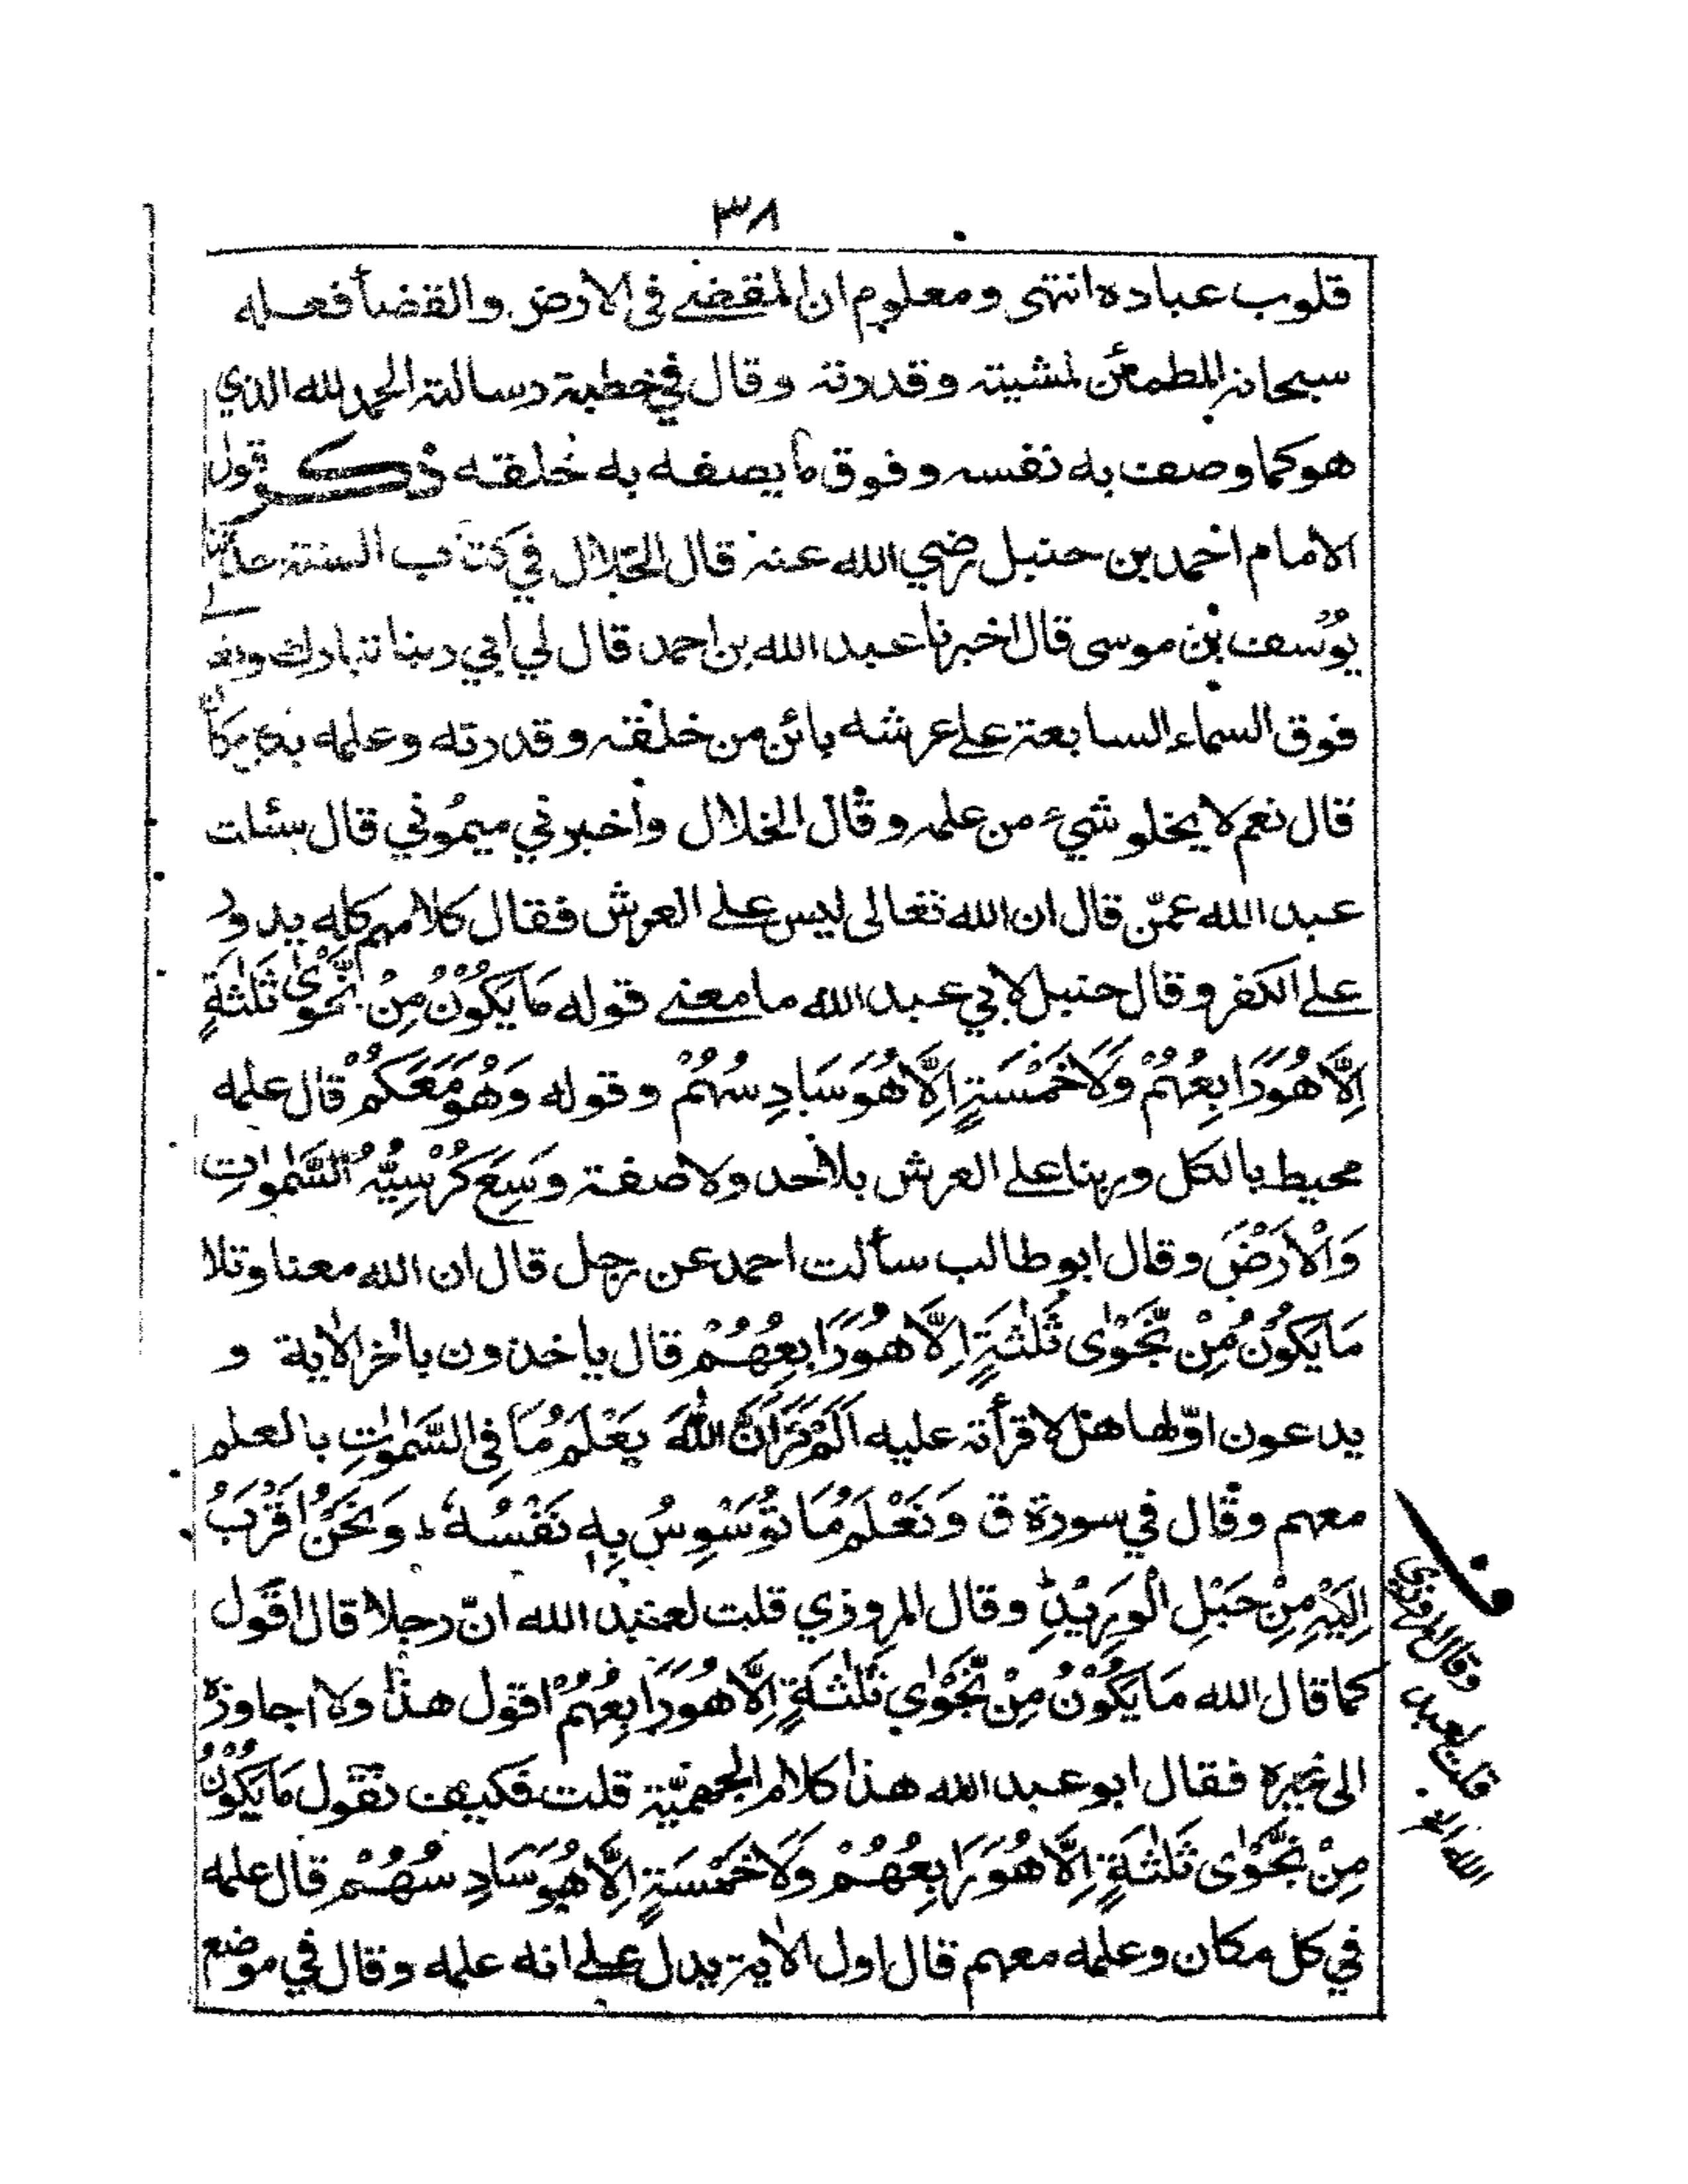 ٣٨
قلوب عباده انتهى ومعلوم ان المقضے فى الارض والقضأ فعله
سبحانه المطمئن لمشيته وقدرته وقال في خطبة رسالته الحمد لله الذي
هو كما وصف به نفسه وفوق ما يصفه به خلقه ذكر قول
الامام احمد بن حنبل رضي الله عنه قال الخلال في كتاب السنة حدثنا
يُوسف بن موسى قال اخبرنا عبد الله بن احمد قال لي ابي ربنا تبارك
فوق السماء السابعة على عرشه بائن من خلقه وقدرته وعلمه بكل مكان
قال نعم لا يخلو شيء من علمه وقال الخلال واخبرني ميمُوني قال سئلت
عبد الله عمّن قال ان الله تعالى ليس على العرش فقال كلامهم كله يدور
على الكفر وقال حنبل لابي عبد الله ما معنے قوله مَا يَكُوْنُ مِنْ نَّجْوٰى ثَلٰثَةٍ
اِلَّا هُوَ رَابِعُهُمْ وَلَا خَمْسَةٍ اِلَّا هُوَ سَادِسُهُمْ وقوله وَهُوَ مَعَكُمْ قال علمه
محيط بالكل وربنا على العرش بلا حد ولا صفة وَسِعَ كُرْسِيُّهُ السَّمٰوٰاتِ
وَالْاَرْضَ وقال ابو طالب سألت احمد عن رجل قال ان الله معنا وتلا
مَا يَكُوْنُ مِنْ نَّجْوٰى ثَلٰثَةٍ اِلَّا هُوَ رَابِعُهُمْ قال ياخذون باٰخر الاٰية و
يدعون اوّلها هلا قرأته عليه اَلَمْ تَرَ اَنَّ اللّٰهَ يَعْلَمُ مَا فِى السَّمٰوٰتِ بالعلم
معهم وقال في سورة ق وَنَعْلَمُ مَا تُوَسْوِسُ بِهٖ نَفْسُهٗ وَنَحْنُ اَقْرَبُ
اِلَيْهِ مِنْ حَبْلِ الْوَرِيْدِ وقال المروزي قلت لعبد الله انّ رجلا قال اقول
كما قال الله مَا يَكُوْنُ مِنْ نَّجْوٰي ثَلٰثَةٍ اِلَّا هُوَ رَابِعُهُمْ اقول هذا ولا اجاوزه
الى غيره فقال ابو عبد الله هذا كلام الجهميّة قلت فكيف نقول مَا يَكُوْنُ
مِنْ نَّجْوٰى ثَلٰثَةٍ اِلَّا هُوَ رَابِعُهُمْ وَلَا خَمْسَةٍ اِلَّا هُوَ سَادِسُهُمْ قال علمه
في كل مكان وعلمه معهم قال اول الاٰية يدل على انه علمه وقال في موضع
وقال المروزي
قلت لعبد
الله الخ